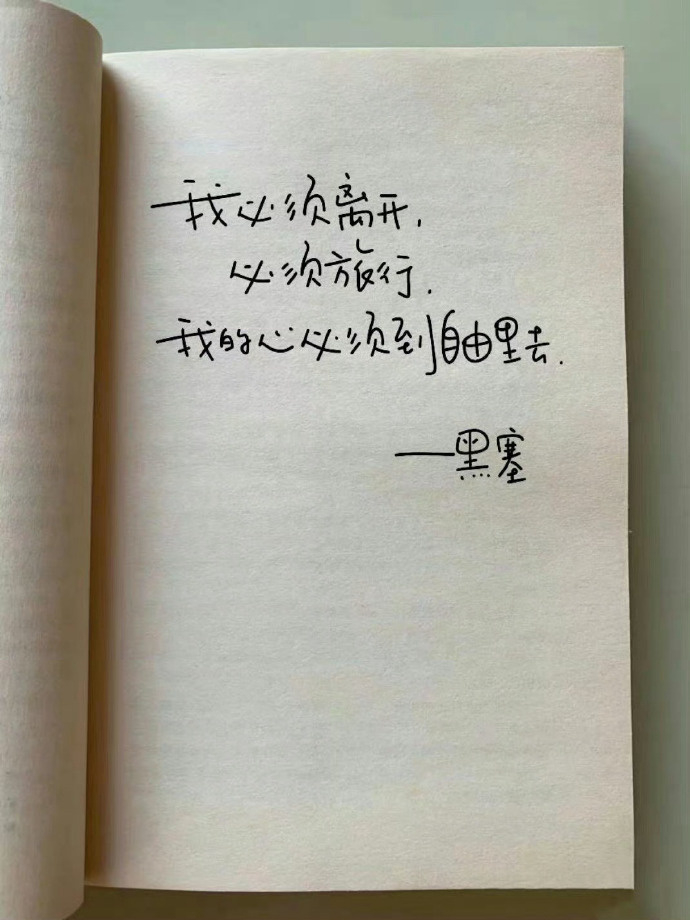 我必须离开.
必须旅行.
我的心必须到自由里去.
——黑塞